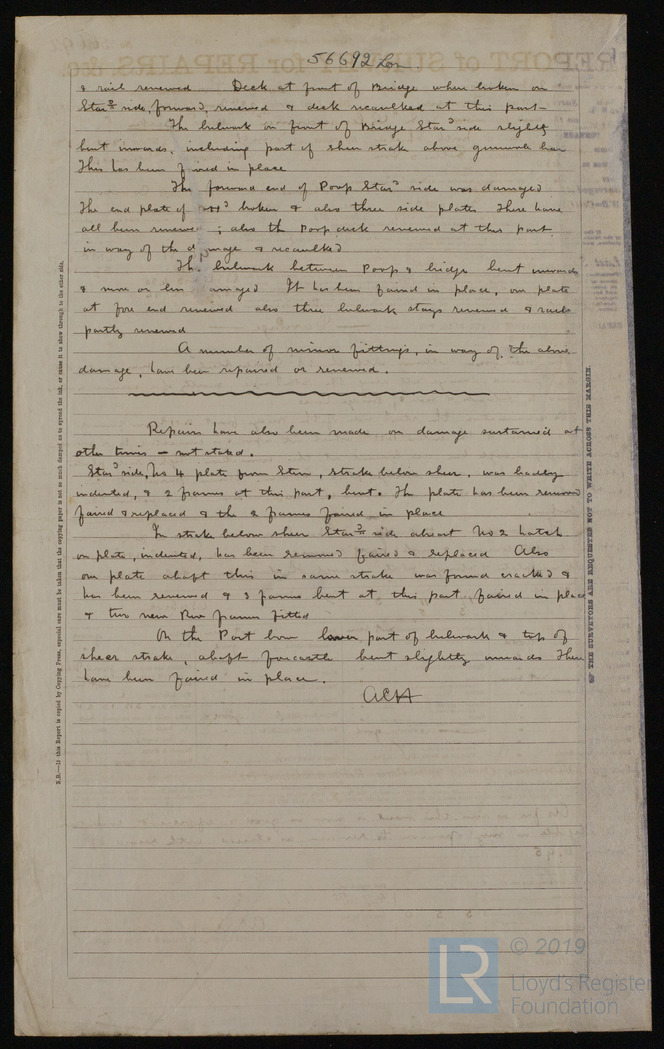 56692 Lon
& rail renewed Deck at front of Bridge when broken on
Starbd side, forward, renewed & deck recaulked at this part
The bulwark on front of Bridge Starbd side slightly
bent inwards, including part of sheer strake above gunwale bar
This has been faired in place
The forward end of Poop Starbd side was damaged
The end plate of broken & also three side plates These have
all been renewed; also the Poop deck renewed at this part
in way of the damage & recaulked
The bulwark between Poop & bridge bent inwards
& more or less damaged It has been faired in place, one plate
at fore end renewed also three bulwark stays renewed & rail
partly renewed
A number of minor fittings, in way of, the above
damage, have been repaired or renewed.
Repairs have also been made on damage sustained at
other times — not stated.
Starbd side, No 4 plate from Stem, strake below sheer, was badly
indented, & 2 frames at this part, bent. The plate has been removed
faired & replaced & the 2 frames faired in place
In strake below sheer Starbd side abreast No 2 hatch
one plate, indented, has been removed faired & replaced Also
one plate abaft this in same strake was found cracked &
has been renewed & 3 frames bent at this part faired in place
& two new Rev frames fitted
On the Port bow lower part of bulwark & top of
sheer strake, abaft forecastle bent slightly inwards These
have been faired in place.
ACH
N.B.—If this Report is copied by Copying Press, especial care must be taken that the copying paper is not so much damped as to spread the ink, or cause it to show through to the other side.
THE SURVEYORS ARE REQUESTED NOT TO WRITE ACROSS THIS MARGIN.
© 2019
LR
Lloyd's Register
Foundation